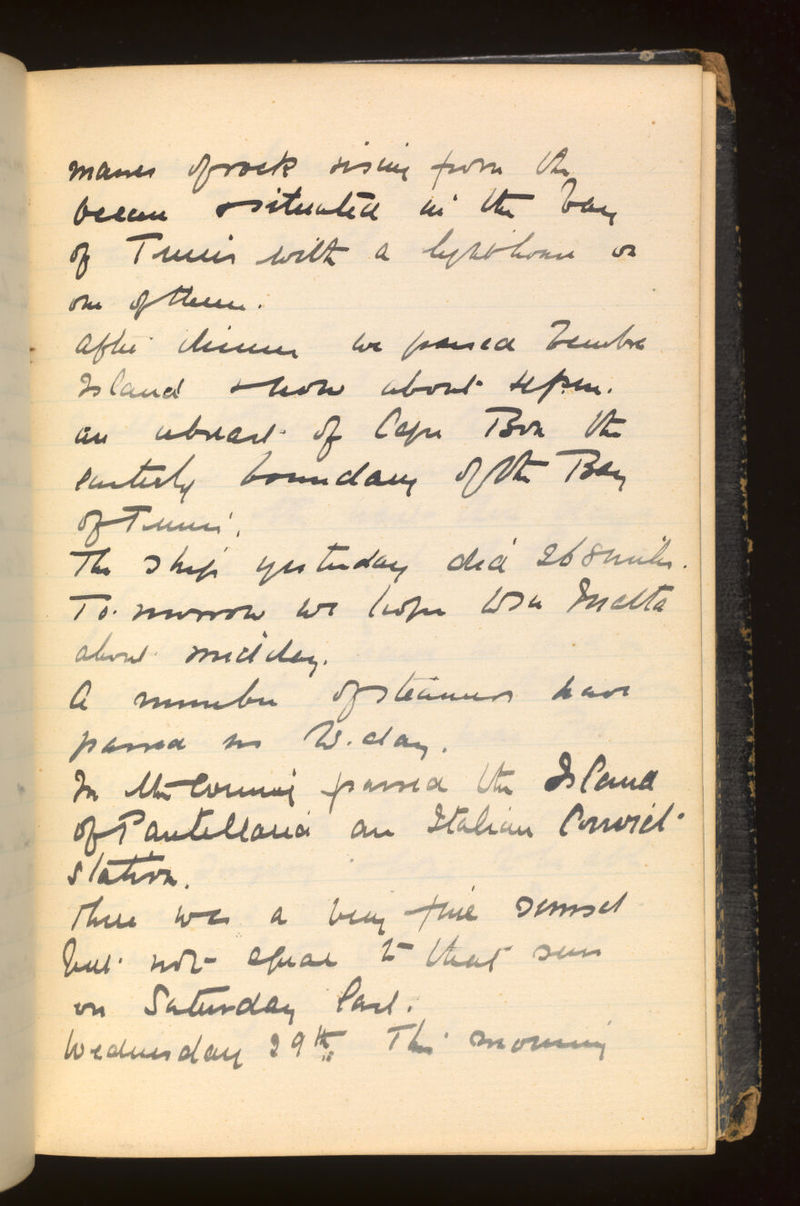 masses of rock rising from the
ocean & situated in the bay
of Tunis with a lighthouse on
one of them.
After dinner we passed Zembra
Island & now about 4 p.m.
are abreast of Cape Bon the
easterly boundary of the Bay
of Tunis.
The ship yesterday did 268 miles.
To-morrow we hope to see Malta
about midday.
A number of steamers have
passed us to-day.
In the evening passed the Island
of Pantellaria an Italian Convict
station.
There was a very fine sunset
but not equal to that seen
on Saturday last.
Wednesday 29th. This morning